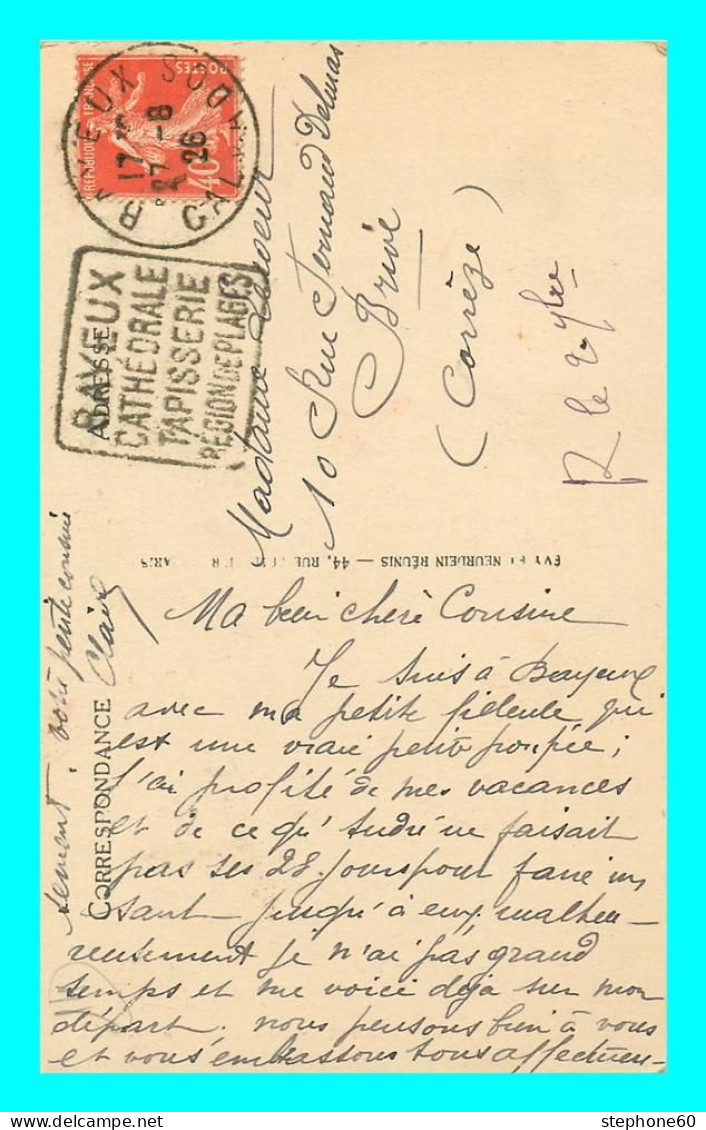 BAYEUX
CALVADOS
17
27-8
26
POSTES
REPUBLIQUE FRANÇAISE
40
BAYEUX
CATHÉDRALE
TAPISSERIE
RÉGION DE PLAGES
ADRESSE
Madame
10 Rue Fernand Delmas
Brive
(Corrèze)
R le
ÉVY ET NEURDEIN RÉUNIS — 44, RUE
CORRESPONDANCE
Ma bien chère Cousine
Je suis à Bayeux
avec ma petite filleule qui
est une vraie petite poupée ;
j'ai profité de mes vacances
et de ce qu'André ne faisait
pas ses 28 jours pour faire un
saut jusqu'à eux. malheu-
reusement je n'ai pas grand
temps et me voici déjà sur mon
départ. nous pensons bien à vous
et vous embrassons tous affectueu-
sement. votre petite cousine
Claire
stephone60